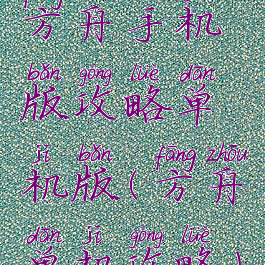 方舟手机
bǎn gōng lüè dān
版攻略单
jī bǎn fāng zhōu
机版(方舟
dān jī gōng lüè
单机攻略)